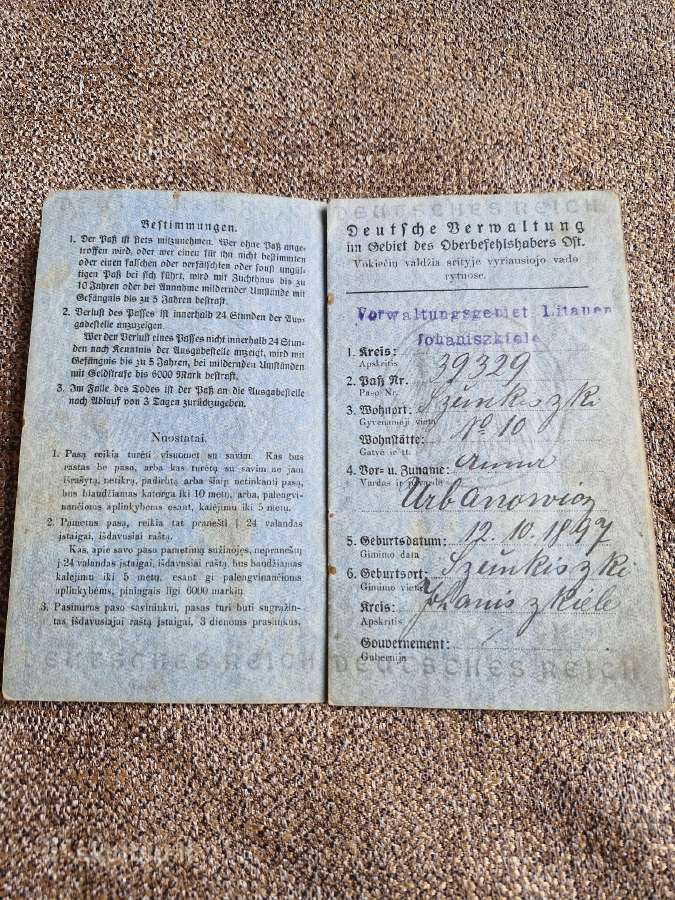 DEUTSCHES REICH
Bestimmungen.
1. Der Paß ist stets mitzunehmen. Wer ohne Paß ange-
troffen wird, oder wer einen für ihn nicht bestimmten
oder einen falschen oder verfälschten oder sonst ungül-
tigen Paß bei sich führt, wird mit Zuchthaus bis zu
10 Jahren oder bei Annahme mildernder Umstände mit
Gefängnis bis zu 5 Jahren bestraft.
2. Verlust des Passes ist innerhalb 24 Stunden der Aus-
gabestelle anzuzeigen.
Wer den Verlust eines Passes nicht innerhalb 24 Stun-
den nach Kenntnis der Ausgabestelle anzeigt, wird mit
Gefängnis bis zu 5 Jahren, bei mildernden Umständen
mit Geldstrafe bis zu 6000 Mark bestraft.
3. Im Falle des Todes ist der Paß an die Ausgabestelle
nach Ablauf von 3 Tagen zurückzugeben.
Nuostatai.
1. Pasą reikia turėti visuomet su savim. Kas bus
rastas be paso, arba kas turėtų su savim ne jam
išrašytą, netikrą, padirbtą arba šiaip netinkantį pasą,
bus baudžiamas katorga iki 10 metų, arba, palengvi-
nančioms aplinkybėms esant, kalėjimu iki 5 metų.
2. Pametus pasą, reikia tat pranešti į 24 valandas
įstaigai, išdavusiai raštą.
Kas, apie savo paso pametimą sužinojęs, nepraneštų
į 24 valandas įstaigai, išdavusiai raštą, bus baudžiamas
kalėjimu iki 5 metų, esant gi palengvinančioms
aplinkybėms, piningais ligi 6000 markių.
3. Pasimirus paso savininkui, pasas turi būti sugrąžin-
tas išdavusiajai raštą įstaigai, 3 dienoms praslinkus.
DEUTSCHES REICH
DEUTSCHES REICH
Deutsche Verwaltung
im Gebiet des Oberbefehlshabers Ost.
Vokiečių valdžia srityje vyriausiojo vado
rytuose.
Verwaltungsgebiet Litauen
Johaniszkiele
1. Kreis:
Apskritis
2. Paß Nr. 39329
Paso Nr.
3. Wohnort: Szunkiszki
Gyvenamoji vieta
Wohnstätte: No 10
Gatvė ir tt.
4. Vor- u. Zuname: Anna
Vardas ir pavardė
Urbanowicz
5. Geburtsdatum: 12. 10. 1897
Gimimo data
6. Geburtsort: Szunkiszki
Gimimo vieta
Kreis: Johaniszkiele
Apskritis
Gouvernement:
Gubernija
DEUTSCHES REICH